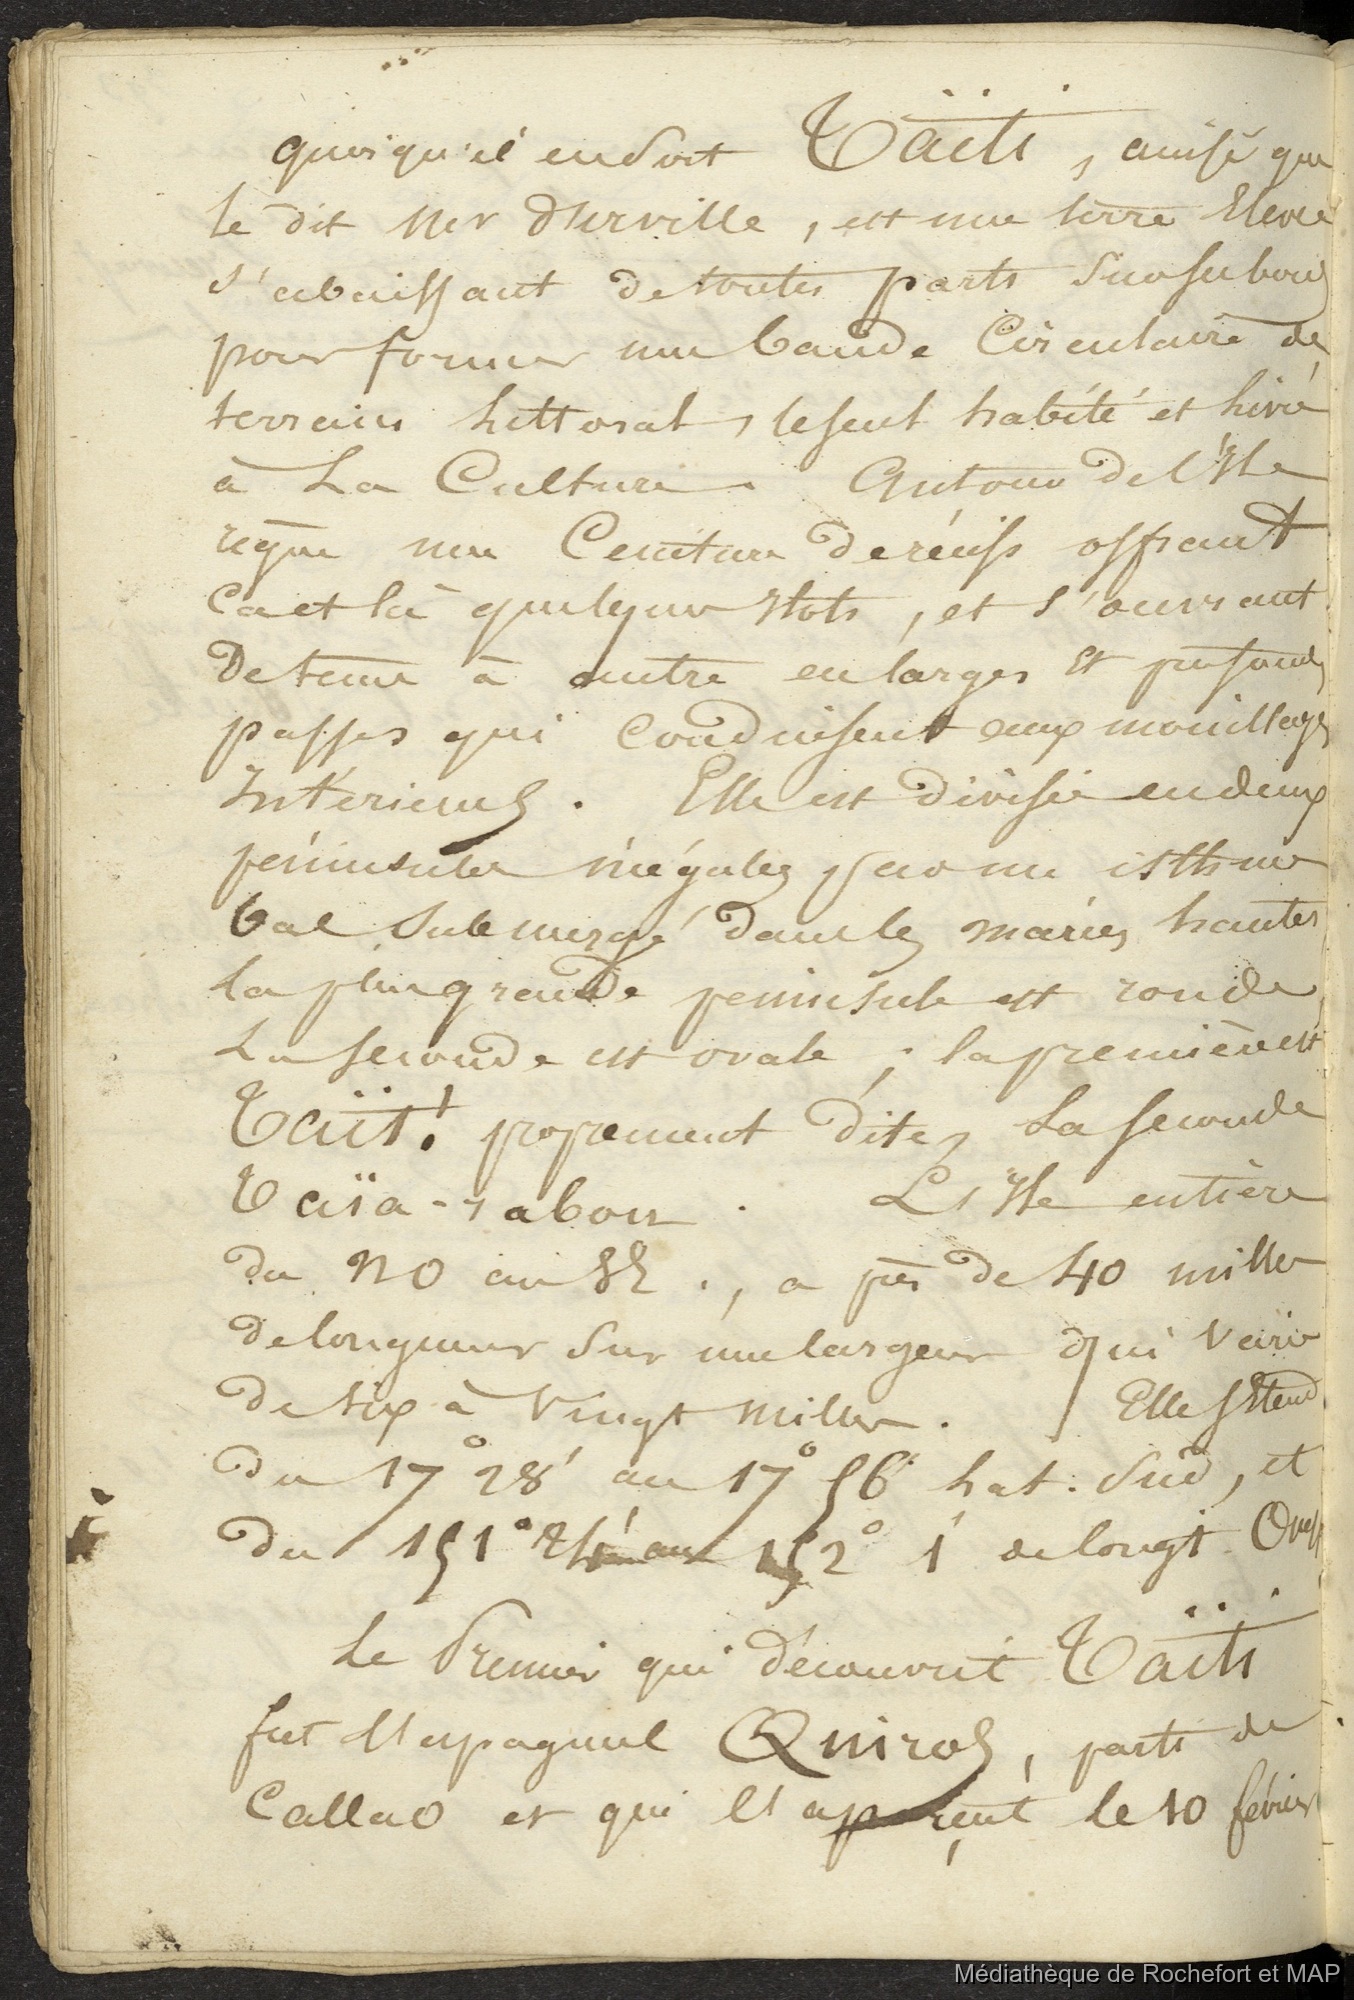 quoiqu'il en soit Taïti, ainsi que
le dit Mr d'Urville, est une terre Elevée
s'abaissant de toutes parts sur ses bords
pour former une bande Circulaire de
terrain littoral, le seul habité et livré
à La Culture. Autour de l'Ile
règne une Ceinture de récifs offrant
ca et là quelques Ilots, et s'ouvrant
De tems à autre en larges Et profonds
passes qui conduisent aux mouillages
Intérieurs. Elle est divisée en deux
péninsules inégales par un isthme
bas submergé dans les marées hautes
La plus grande peninsule est ronde,
La seconde est ovale; la première est
Taïti propement dite, La seconde
Taïa-rabou. L'Ile entière
du NO au SE., a près de 40 milles
de longueur sur une largeur qui varie
de six à vingt milles. Elle s'Etend
Du 17° 28' au 17° 56' Lat. Sud, et
du 151° au 152° 1' de longt. Ouest
Le Premier qui découvrit Taïti
fut l'Espagnol Quiros, parti de
Callao et qui l'aperçut le 10 février
Médiathèque de Rochefort et MAP